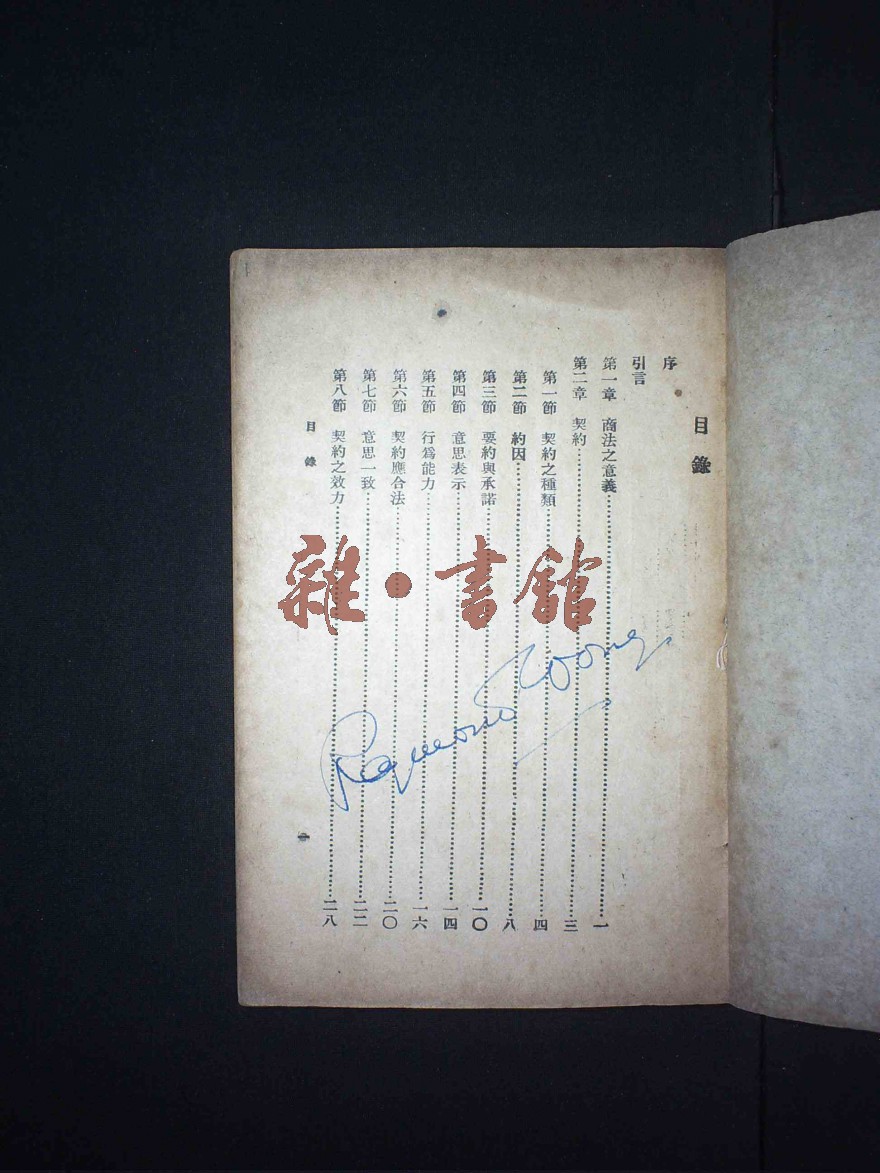 目錄
序
引言
第一章 商法之意義……一
第二章 契約……三
第一節 契約之種類……四
第二節 約因……八
第三節 要約與承諾……一〇
第四節 意思表示……一四
第五節 行爲能力……一六
第六節 契約應合法……二〇
第七節 意思一致……二二
第八節 契約之效力……二八
目錄
雜·書館
Raymond Woong